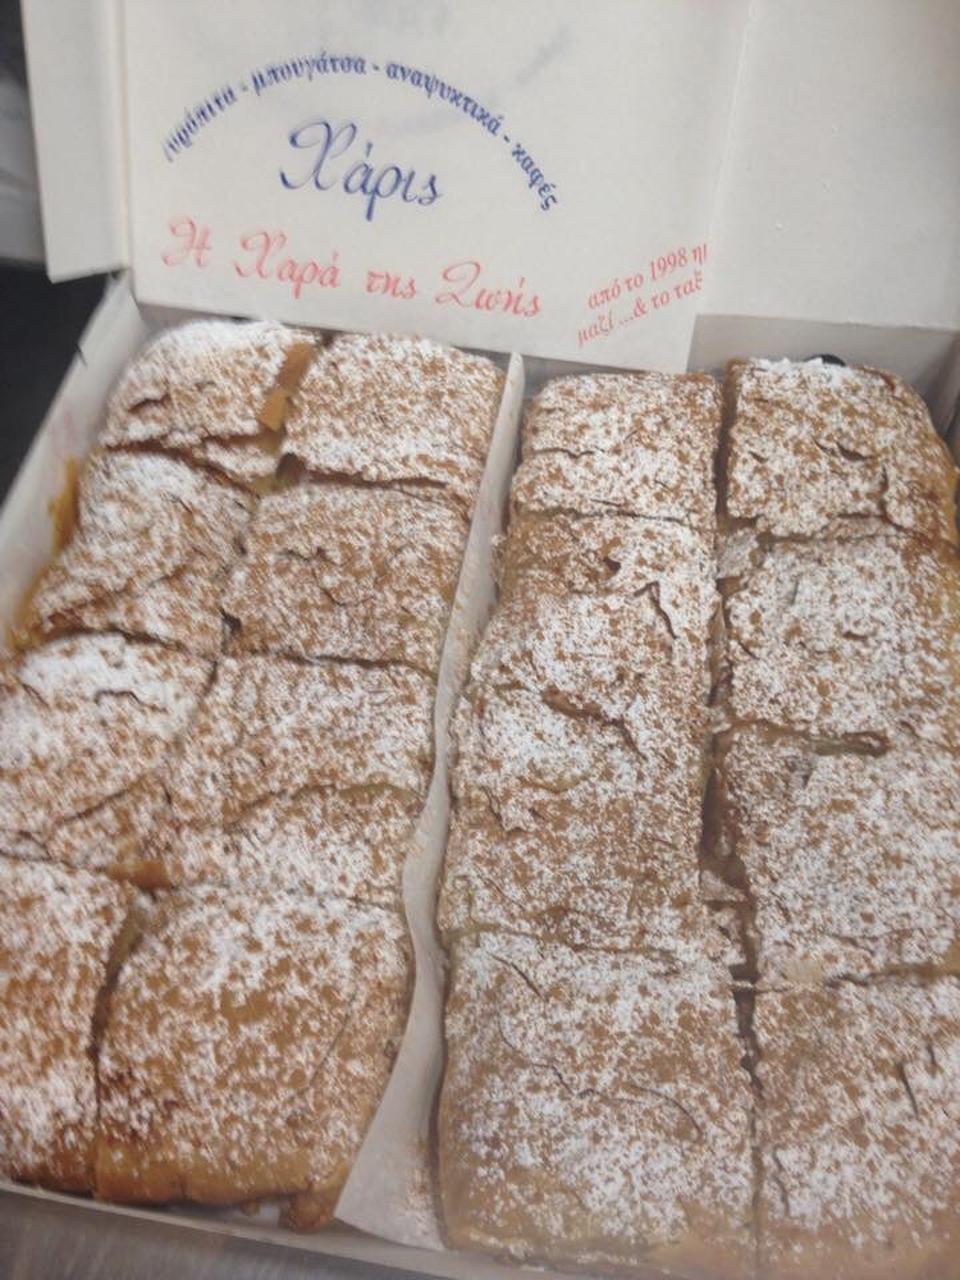 τυρόπιτα - μπουγάτσα - αναψυκτικά - καφές
Χάρις
Η Χαρά της Ζωής
από το 1998 η
μαζί ...& το ταξ